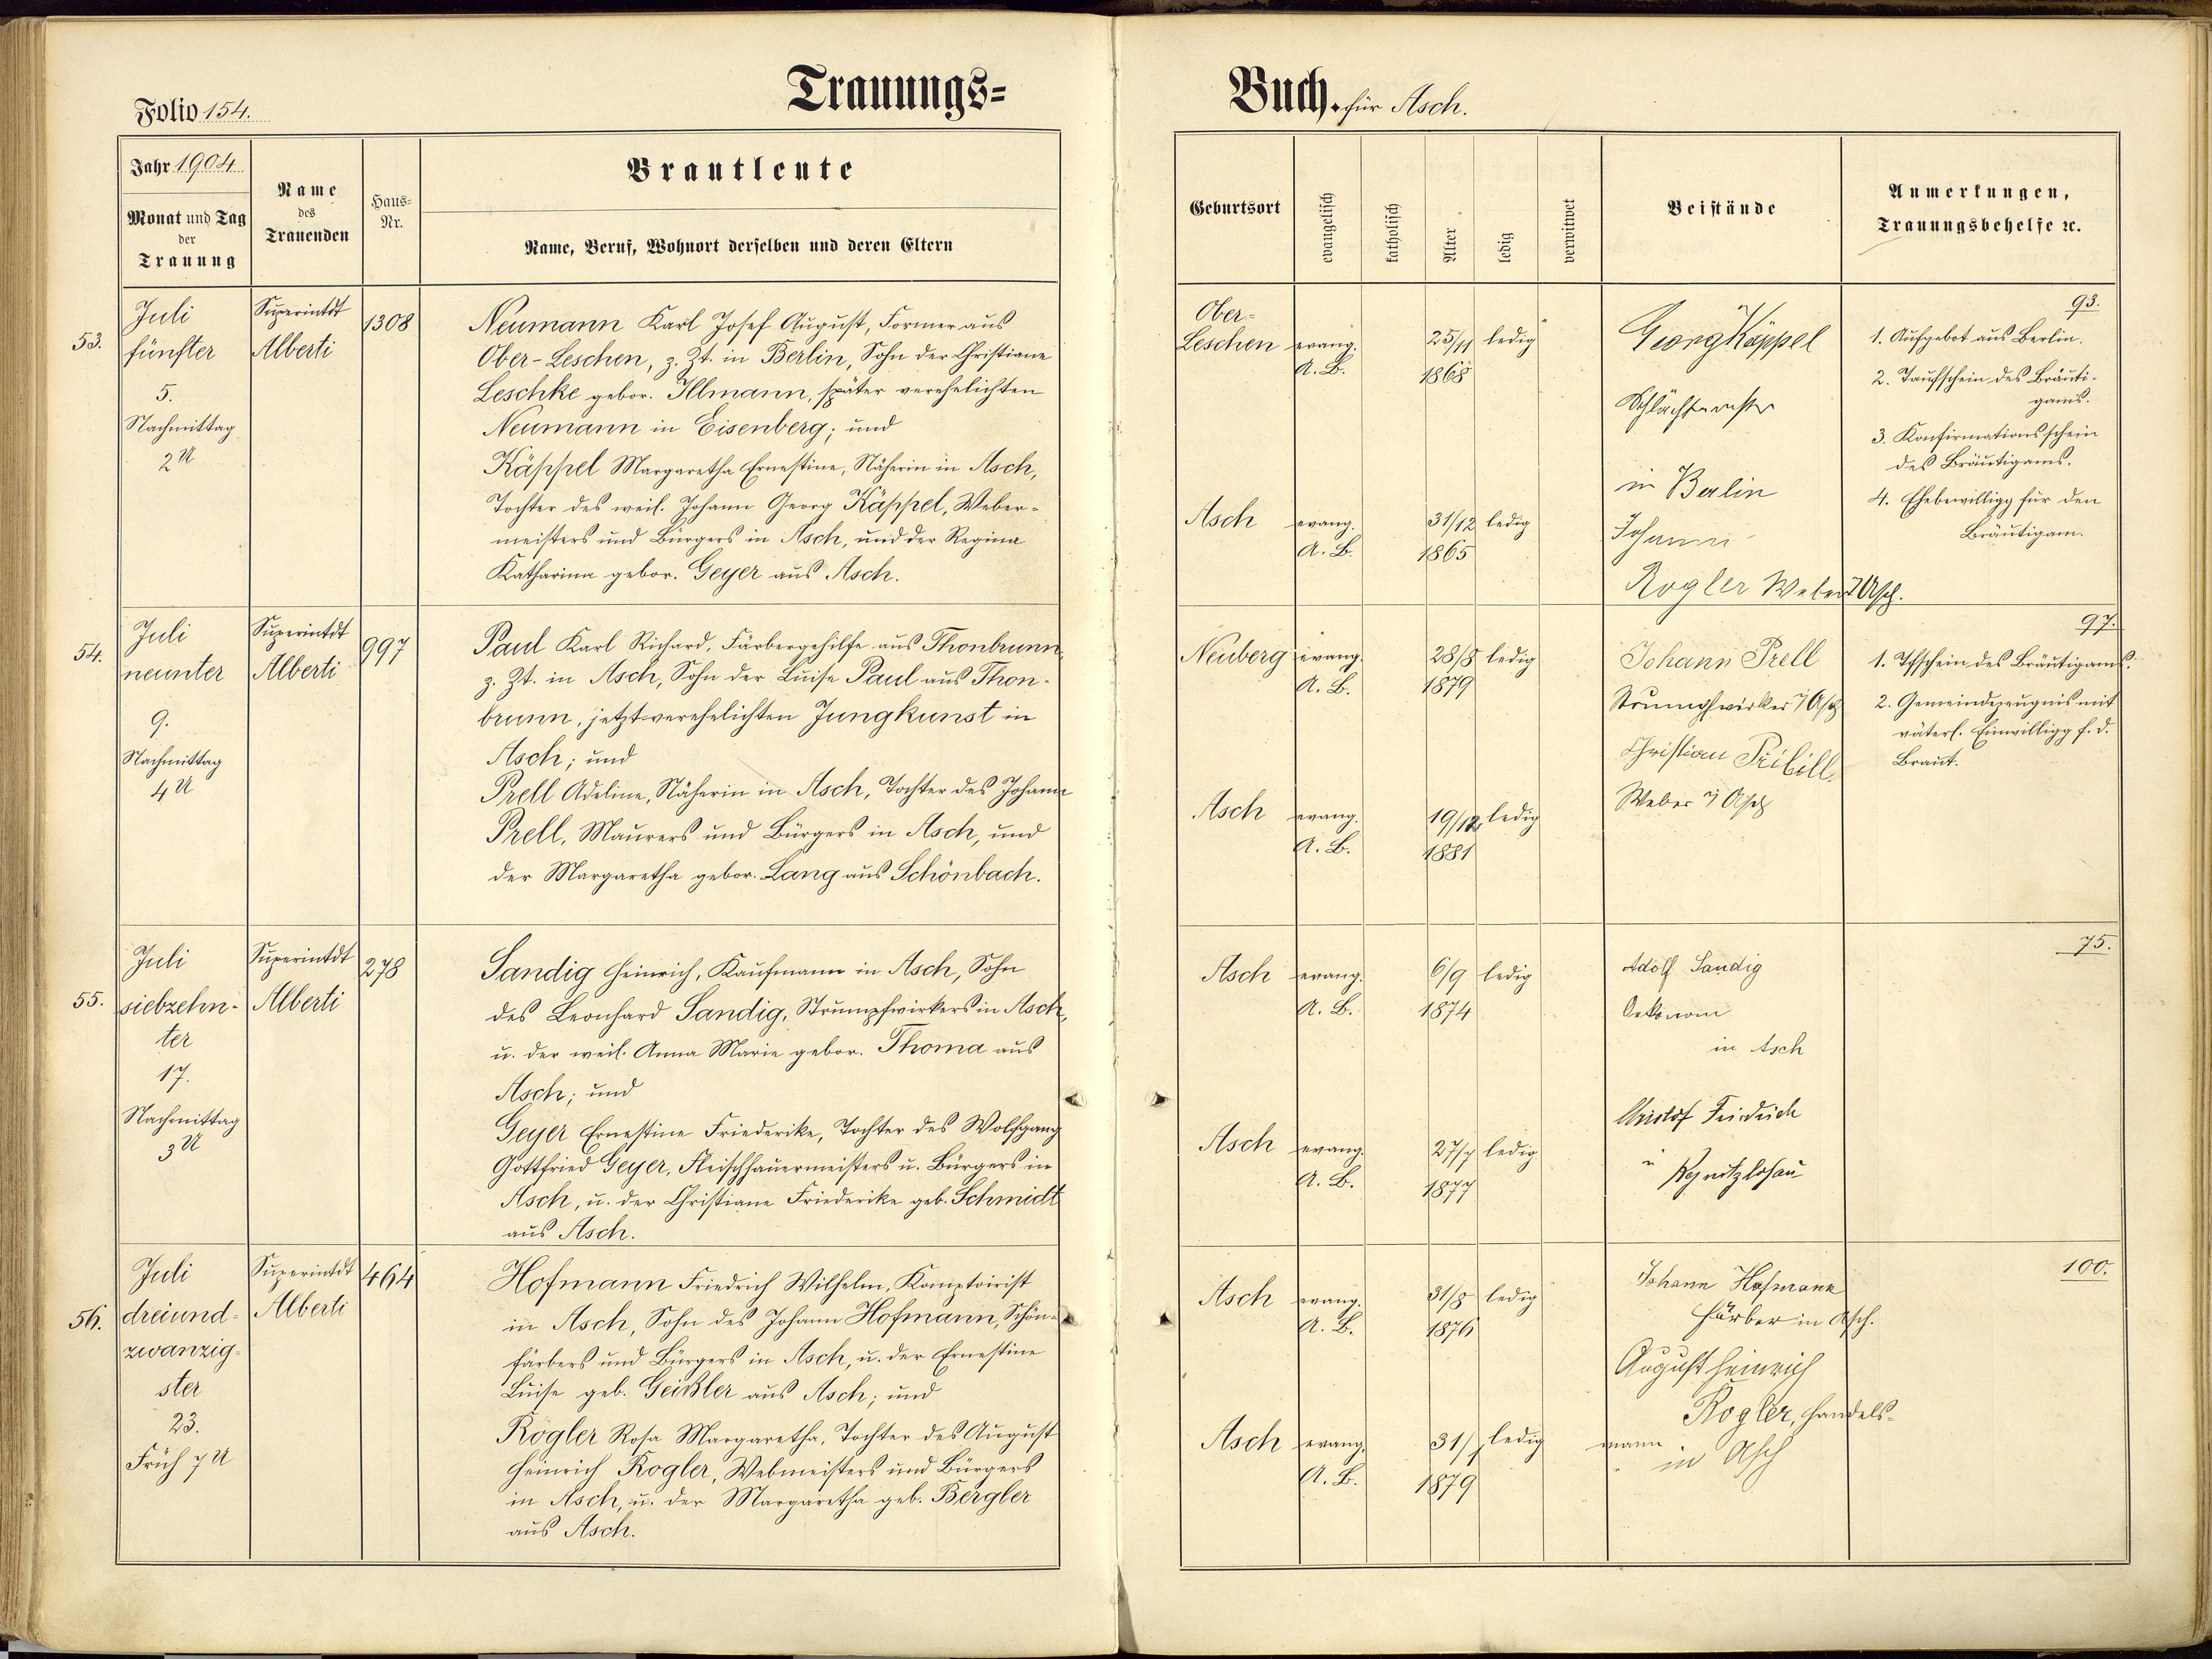 Folio 154.
Trauungs=
Buch. für Asch.
Jahr 1904
Monat und Tag
der
Trauung
Name
des
Trauenden
Haus=
Nr.
Brautleute
Name, Beruf, Wohnort derselben und deren Eltern
Geburtsort
evangelisch
katholisch
Alter
ledig
verwitwet
Beistände
Anmerkungen,
Trauungsbehelfe ꝛc.
53.
Juli
fünfter
5.
Nachmittag
2 U
Superintdt
Alberti
1308
Neumann Karl Josef August, Former aus
Ober-Leschen, z. Zt. in Berlin, Sohn der Christiane
Leschke gebor. Illmann, später verehelichten
Neumann in Eisenberg; und
Käppel Margaretha Ernestine, Näherin in Asch,
Tochter des weil. Johann Georg Käppel, Weber-
meisters und Bürgers in Asch, und der Regina
Katharina gebor. Geyer aus Asch.
Ober-
Leschen evang. 25/11 ledig
A. B. 1868
Asch evang. 31/12 ledig
A. B. 1865
Georg Käppel
in Berlin
Johann
Rogler Weber i Asch.
93.
1. Aufgebot aus Berlin.
2. Taufschein des Bräuti-
gams.
3. Konfirmationsschein
des Bräutigams.
4. Ehebewilligg für den
Bräutigam.
54.
Juli
neunter
9.
Nachmittag
4 U
Superintdt
Alberti
997
Paul Karl Richard, Färbergehilfe aus Thonbrunn,
z. Zt. in Asch, Sohn der Luise Paul aus Thon-
brunn, jetzt verehelichten Jungkunst in
Asch; und
Prell Adeline, Näherin in Asch, Tochter des Johann
Prell, Maurers und Bürgers in Asch, und
der Margaretha gebor. Lang aus Schönbach.
Neuberg evang. 28/8 ledig
A. B. 1879
Asch evang. 19/12 ledig
A. B. 1881
Johann Prell
Strumpfwirker i Asch
Christian Pribill.
Weber i Asch
97.
1. Tfschein des Bräutigams.
2. Gemeindezeugnis mit
väterl. Einwilligg f. d.
Braut.
55.
Juli
siebzehn-
ter
17.
Nachmittag
3 U
Superintdt
Alberti
278
Sandig Heinrich, Kaufmann in Asch, Sohn
des Leonhard Sandig, Strumpfwirkers in Asch,
u. der weil. Anna Marie gebor. Thoma aus
Asch; und
Geyer Ernestine Friederike, Tochter des Wolfgang
Gottfried Geyer, Fleischhauermeisters u. Bürgers in
Asch, u. der Christiane Friederike geb. Schmidt
aus Asch.
Asch evang. 6/9 ledig
A. B. 1874
Asch evang. 27/7 ledig
A. B. 1877
Adolf Sandig
Oekonom
in Asch
Christof Friedrich
in Regnitzlosau
75.
56.
Juli
dreiund-
zwanzig-
ster
23.
Früh 7 U
Superintdt
Alberti
464
Hofmann Friedrich Wilhelm, Komptoirist
in Asch, Sohn des Johann Hofmann, Schön-
färbers und Bürgers in Asch, u. der Ernestine
Luise geb. Geißler aus Asch; und
Rogler Rosa Margaretha, Tochter des August
Heinrich Rogler, Webmeisters und Bürgers
in Asch, u. der Margaretha geb. Bergler
aus Asch.
Asch evang. 31/8 ledig
A. B. 1876
Asch evang. ledig
A. B. 1879
Johann Hofmann
Färber in Asch.
August Heinrich
Rogler, Handels-
mann
in Asch
100.